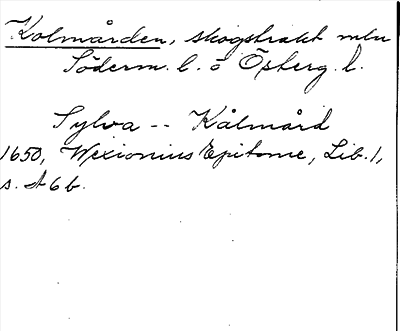 Kolmården, skogstrakt mln
Söderm. l. o Österg. l.
Sylva -- Kålmård
1650, Wexionius Epitome, Lib. 1,
s. A6b.